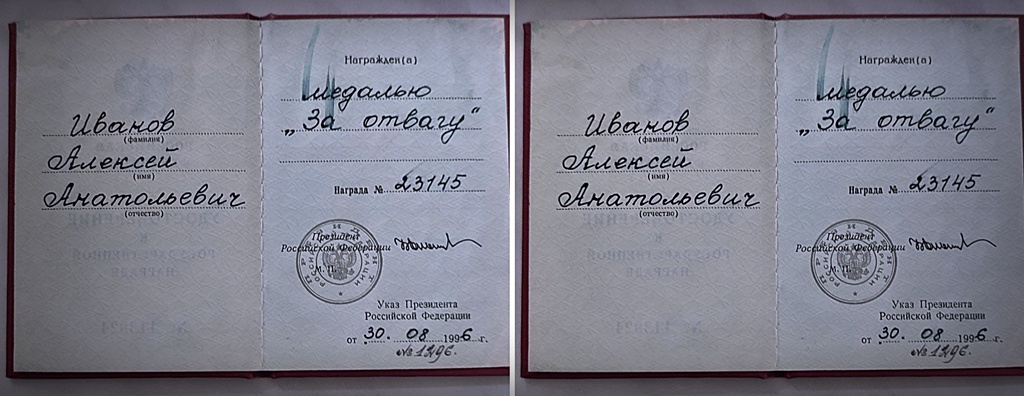 Иванов
(фамилия)
Алексей
(имя)
Анатольевич
(отчество)
Награжден(а)
медалью
„За отвагу“
Награда № 23145
Президент
Российской Федерации
М. П.
Указ Президента
Российской Федерации
от 30. 08 1996 г.
№ 1296.
Иванов
(фамилия)
Алексей
(имя)
Анатольевич
(отчество)
Награжден(а)
медалью
„За отвагу“
Награда № 23145
Президент
Российской Федерации
М. П.
Указ Президента
Российской Федерации
от 30. 08 1996 г.
№ 1296.